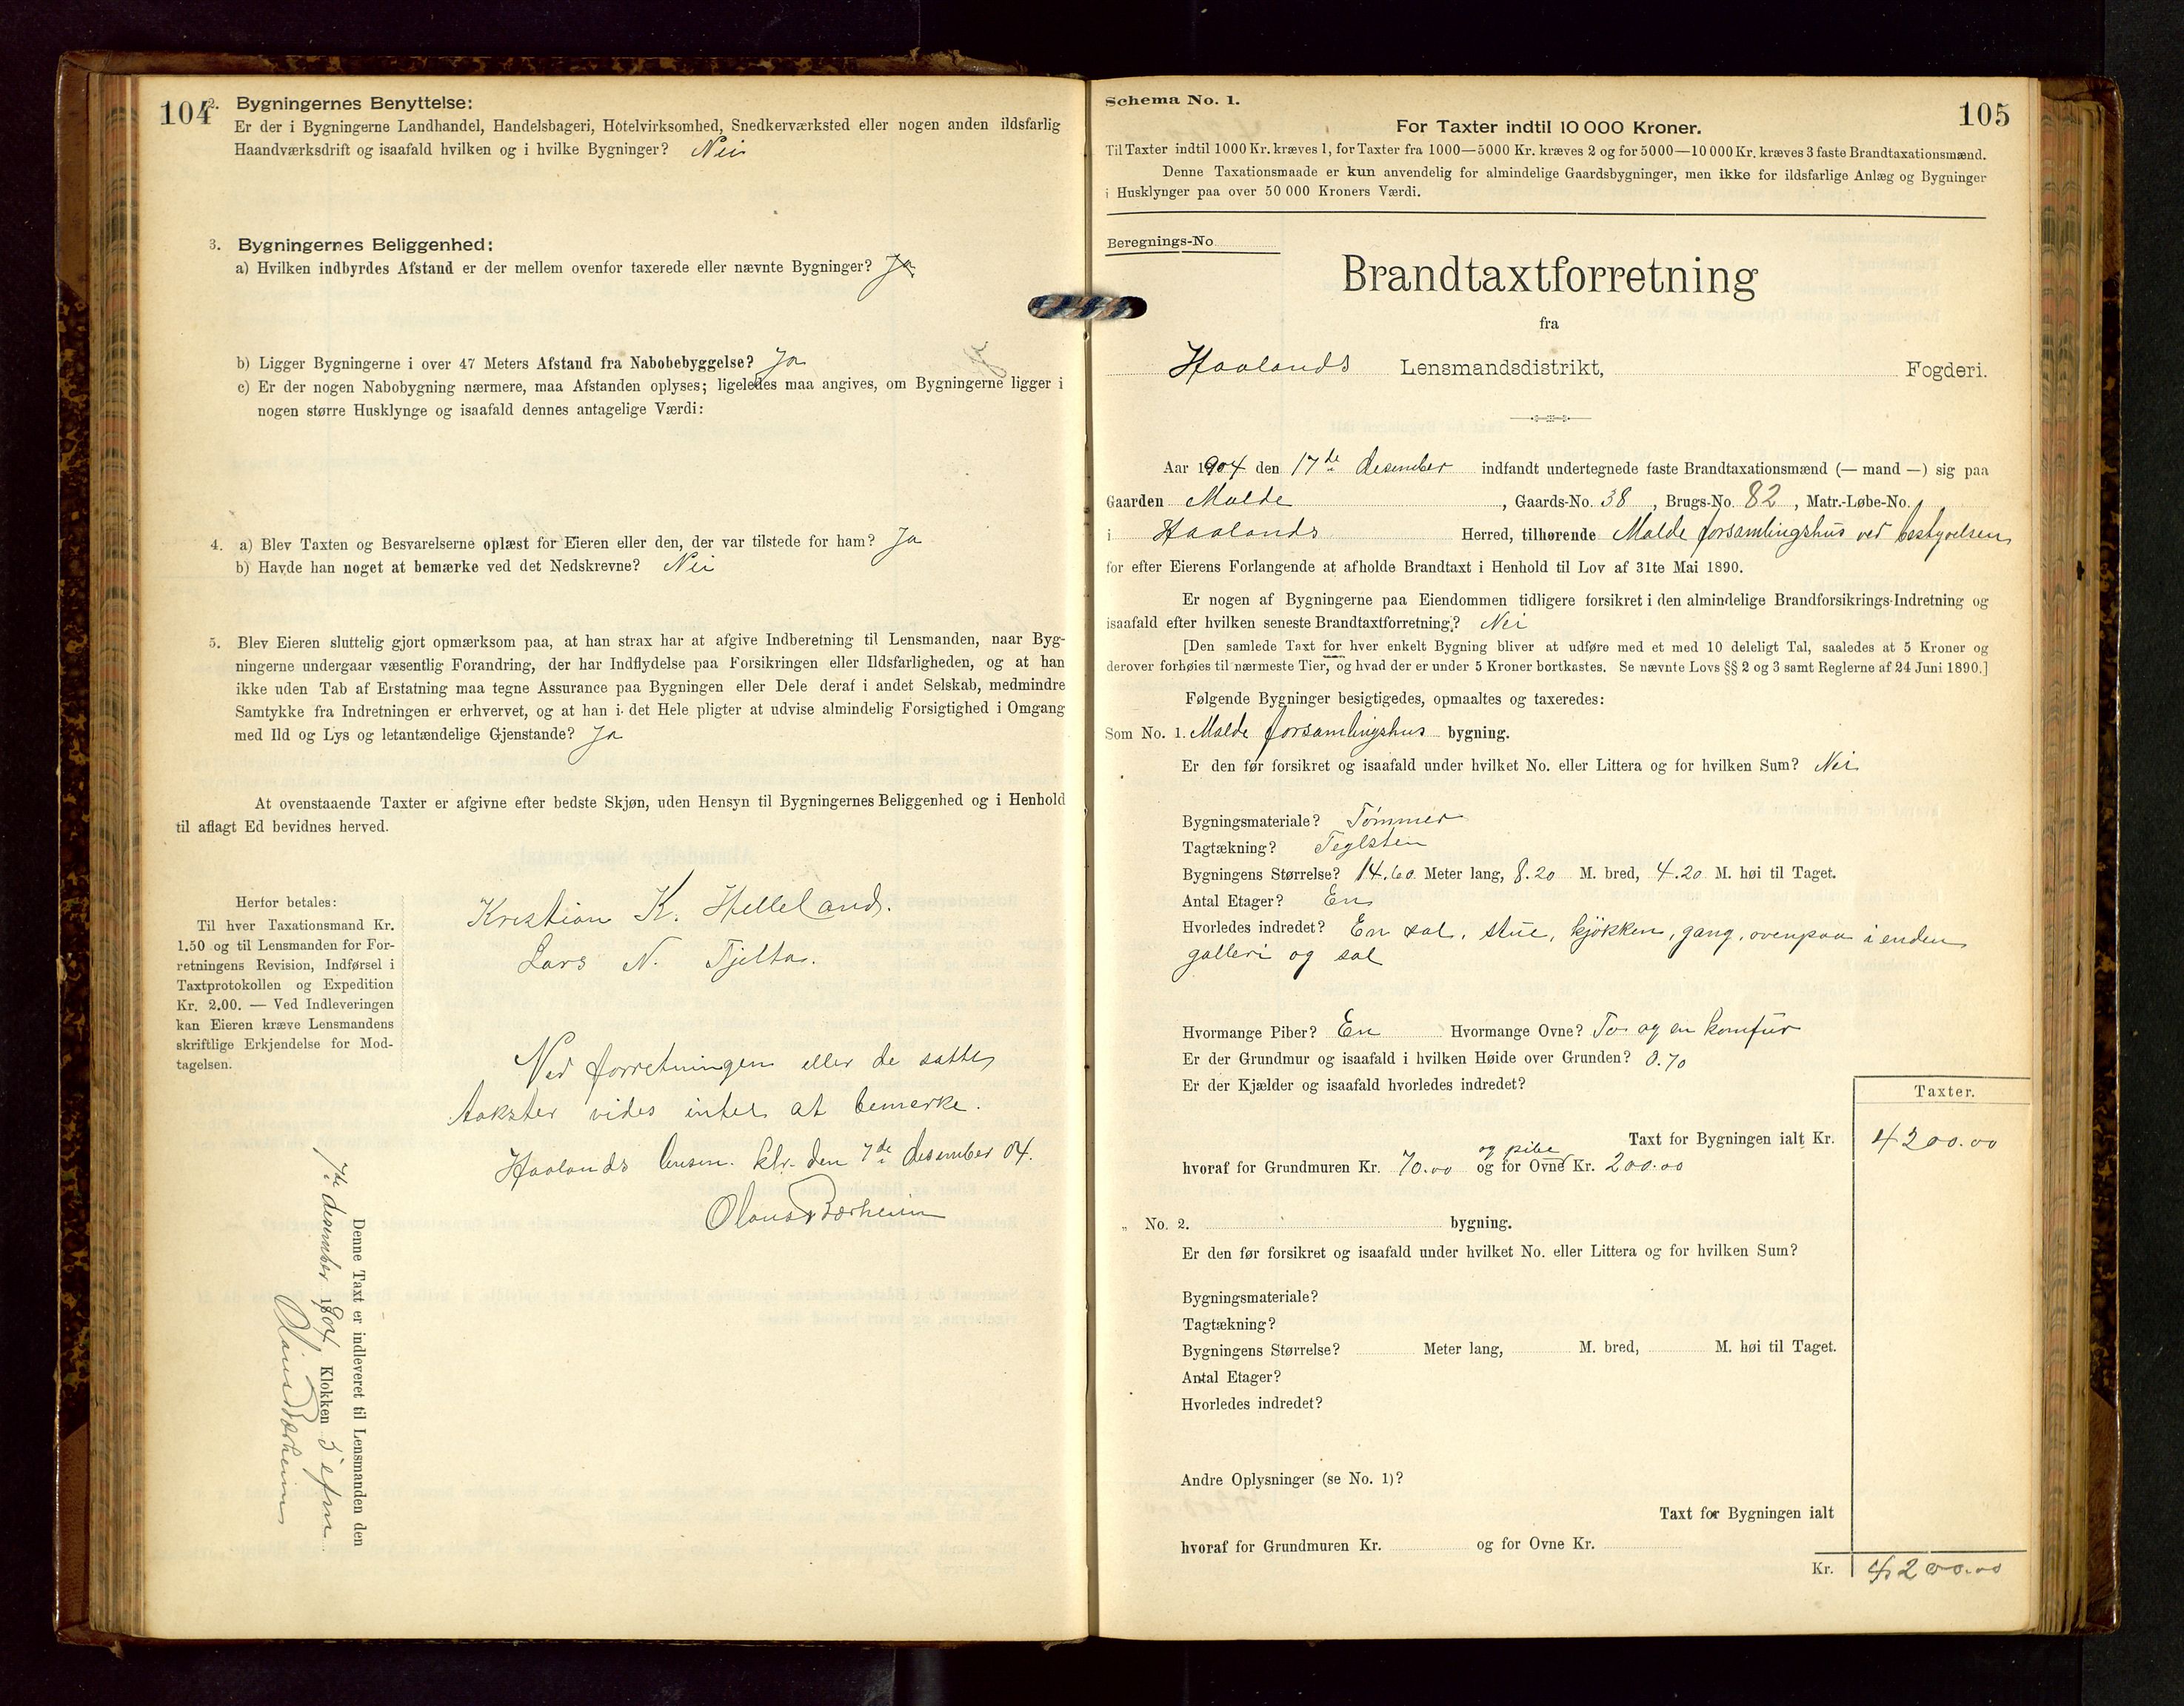 104
2. Bygningernes Benyttelse:
Er der i Bygningerne Landhandel, Handelsbageri, Hotelvirksomhed, Snedkerværksted eller nogen anden ildsfarlig
Haandværksdrift og isaafald hvilken og i hvilke Bygninger? Nei
3. Bygningernes Beliggenhed:
a) Hvilken indbyrdes Afstand er der mellem ovenfor taxerede eller nævnte Bygninger? Ja
b) Ligger Bygningerne i over 47 Meters Afstand fra Nabobebyggelse? Ja
c) Er der nogen Nabobygning nærmere, maa Afstanden oplyses; ligeledes maa angives, om Bygningerne ligger i
nogen større Husklynge og isaafald dennes antagelige Værdi:
4. a) Blev Taxten og Besvarelserne oplæst for Eieren eller den, der var tilstede for ham? Ja
b) Havde han noget at bemærke ved det Nedskrevne? Nei
5. Blev Eieren sluttelig gjort opmærksom paa, at han strax har at afgive Indberetning til Lensmanden, naar Byg-
ningerne undergaar væsentlig Forandring, der har Indflydelse paa Forsikringen eller Ildsfarligheden, og at han
ikke uden Tab af Erstatning maa tegne Assurance paa Bygningen eller Dele deraf i andet Selskab, medmindre
Samtykke fra Indretningen er erhvervet, og at han i det Hele pligter at udvise almindelig Forsigtighed i Omgang
med Ild og Lys og letantændelige Gjenstande? Ja
At ovenstaaende Taxter er afgivne efter bedste Skjøn, uden Hensyn til Bygningernes Beliggenhed og i Henhold
til aflagt Ed bevidnes herved.
Herfor betales:
Til hver Taxationsmand Kr.
1.50 og til Lensmanden for For-
retningens Revision, Indførsel i
Taxtprotokollen og Expedition
Kr. 2.00. — Ved Indleveringen
kan Eieren kræve Lensmandens
skriftlige Erkjendelse for Mod-
tagelsen.
Kristian K. Helleland.
Lars N. Tjelta.
Ved forretningen eller de satte
takster vides intet at bemerke.
Haalands lensm. ktr. den 7de desember 04.
Olaus Bærheim
Denne Taxt er indleveret til Lensmanden den
7de desember 1904 Klokken 5 efm
Olaus Bærheim
Schema No. 1.
105
For Taxter indtil 10 000 Kroner.
Til Taxter indtil 1000 Kr. kræves 1, for Taxter fra 1000—5000 Kr. kræves 2 og for 5000—10 000 Kr. kræves 3 faste Brandtaxationsmænd.
Denne Taxationsmaade er kun anvendelig for almindelige Gaardsbygninger, men ikke for ildsfarlige Anlæg og Bygninger
i Husklynger paa over 50 000 Kroners Værdi.
Beregnings-No.
Brandtaxtforretning
fra
Haalands Lensmandsdistrikt, Fogderi.
Aar 1904 den 17de desember indfandt undertegnede faste Brandtaxationsmænd (— mand —) sig paa
Gaarden Malde, Gaards-No. 38, Brugs-No. 82, Matr.-Løbe-No.
i Haalands Herred, tilhørende Malde forsamlingshus ved bestyrelsen
for efter Eierens Forlangende at afholde Brandtaxt i Henhold til Lov af 31te Mai 1890.
Er nogen af Bygningerne paa Eiendommen tidligere forsikret i den almindelige Brandforsikrings-Indretning og
isaafald efter hvilken seneste Brandtaxtforretning? Nei
[Den samlede Taxt for hver enkelt Bygning bliver at udføre med et med 10 deleligt Tal, saaledes at 5 Kroner og
derover forhøies til nærmeste Tier, og hvad der er under 5 Kroner bortkastes. Se nævnte Lovs §§ 2 og 3 samt Reglerne af 24 Juni 1890.]
Følgende Bygninger besigtigedes, opmaaltes og taxeredes:
Som No. 1. Malde forsamlingshus bygning.
Er den før forsikret og isaafald under hvilket No. eller Littera og for hvilken Sum? Nei
Bygningsmateriale? Tømmer
Tagtækning? Teglsten
Bygningens Størrelse? 14.60 Meter lang, 8.20 M. bred, 4.20 M. høi til Taget.
Antal Etager? En
Hvorledes indredet? En sal, stue, kjøkken, gang, ovenpaa i enden
galleri og sal
Hvormange Piber? En Hvormange Ovne? To og en komfur
Er der Grundmur og isaafald i hvilken Høide over Grunden? 0.70
Er der Kjælder og isaafald hvorledes indredet?
Taxter.
Taxt for Bygningen ialt Kr. 4200.00
og pibe
hvoraf for Grundmuren Kr. 70.00 og for Ovne Kr. 200.00
„ No. 2. bygning.
Er den før forsikret og isaafald under hvilket No. eller Littera og for hvilken Sum?
Bygningsmateriale?
Tagtækning?
Bygningens Størrelse? Meter lang, M. bred, M. høi til Taget.
Antal Etager?
Hvorledes indredet?
Andre Oplysninger (se No. 1)?
Taxt for Bygningen ialt
hvoraf for Grundmuren Kr. og for Ovne Kr.
Kr. 4200.00